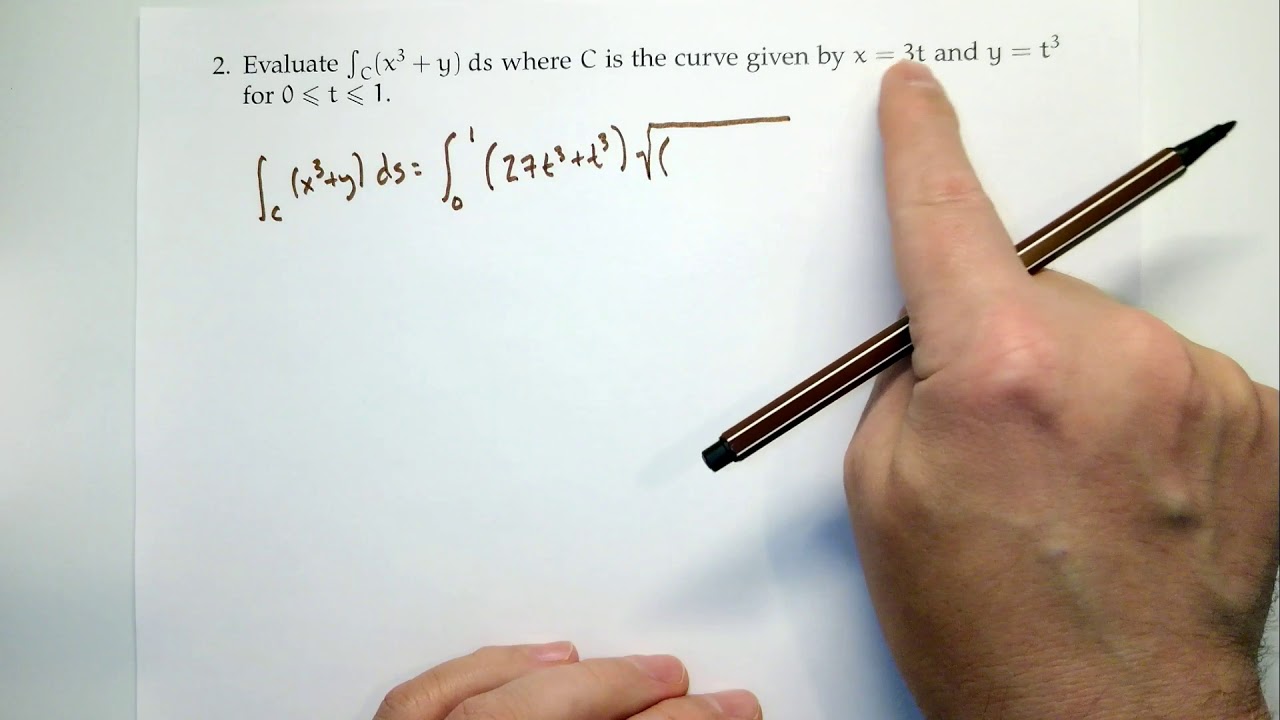 2. Evaluate ∫_C (x³ + y) ds where C is the curve given by x = 3t and y = t³
for 0 ⩽ t ⩽ 1.
∫_c (x³+y) ds = ∫₀¹ (27t³+t³) √(